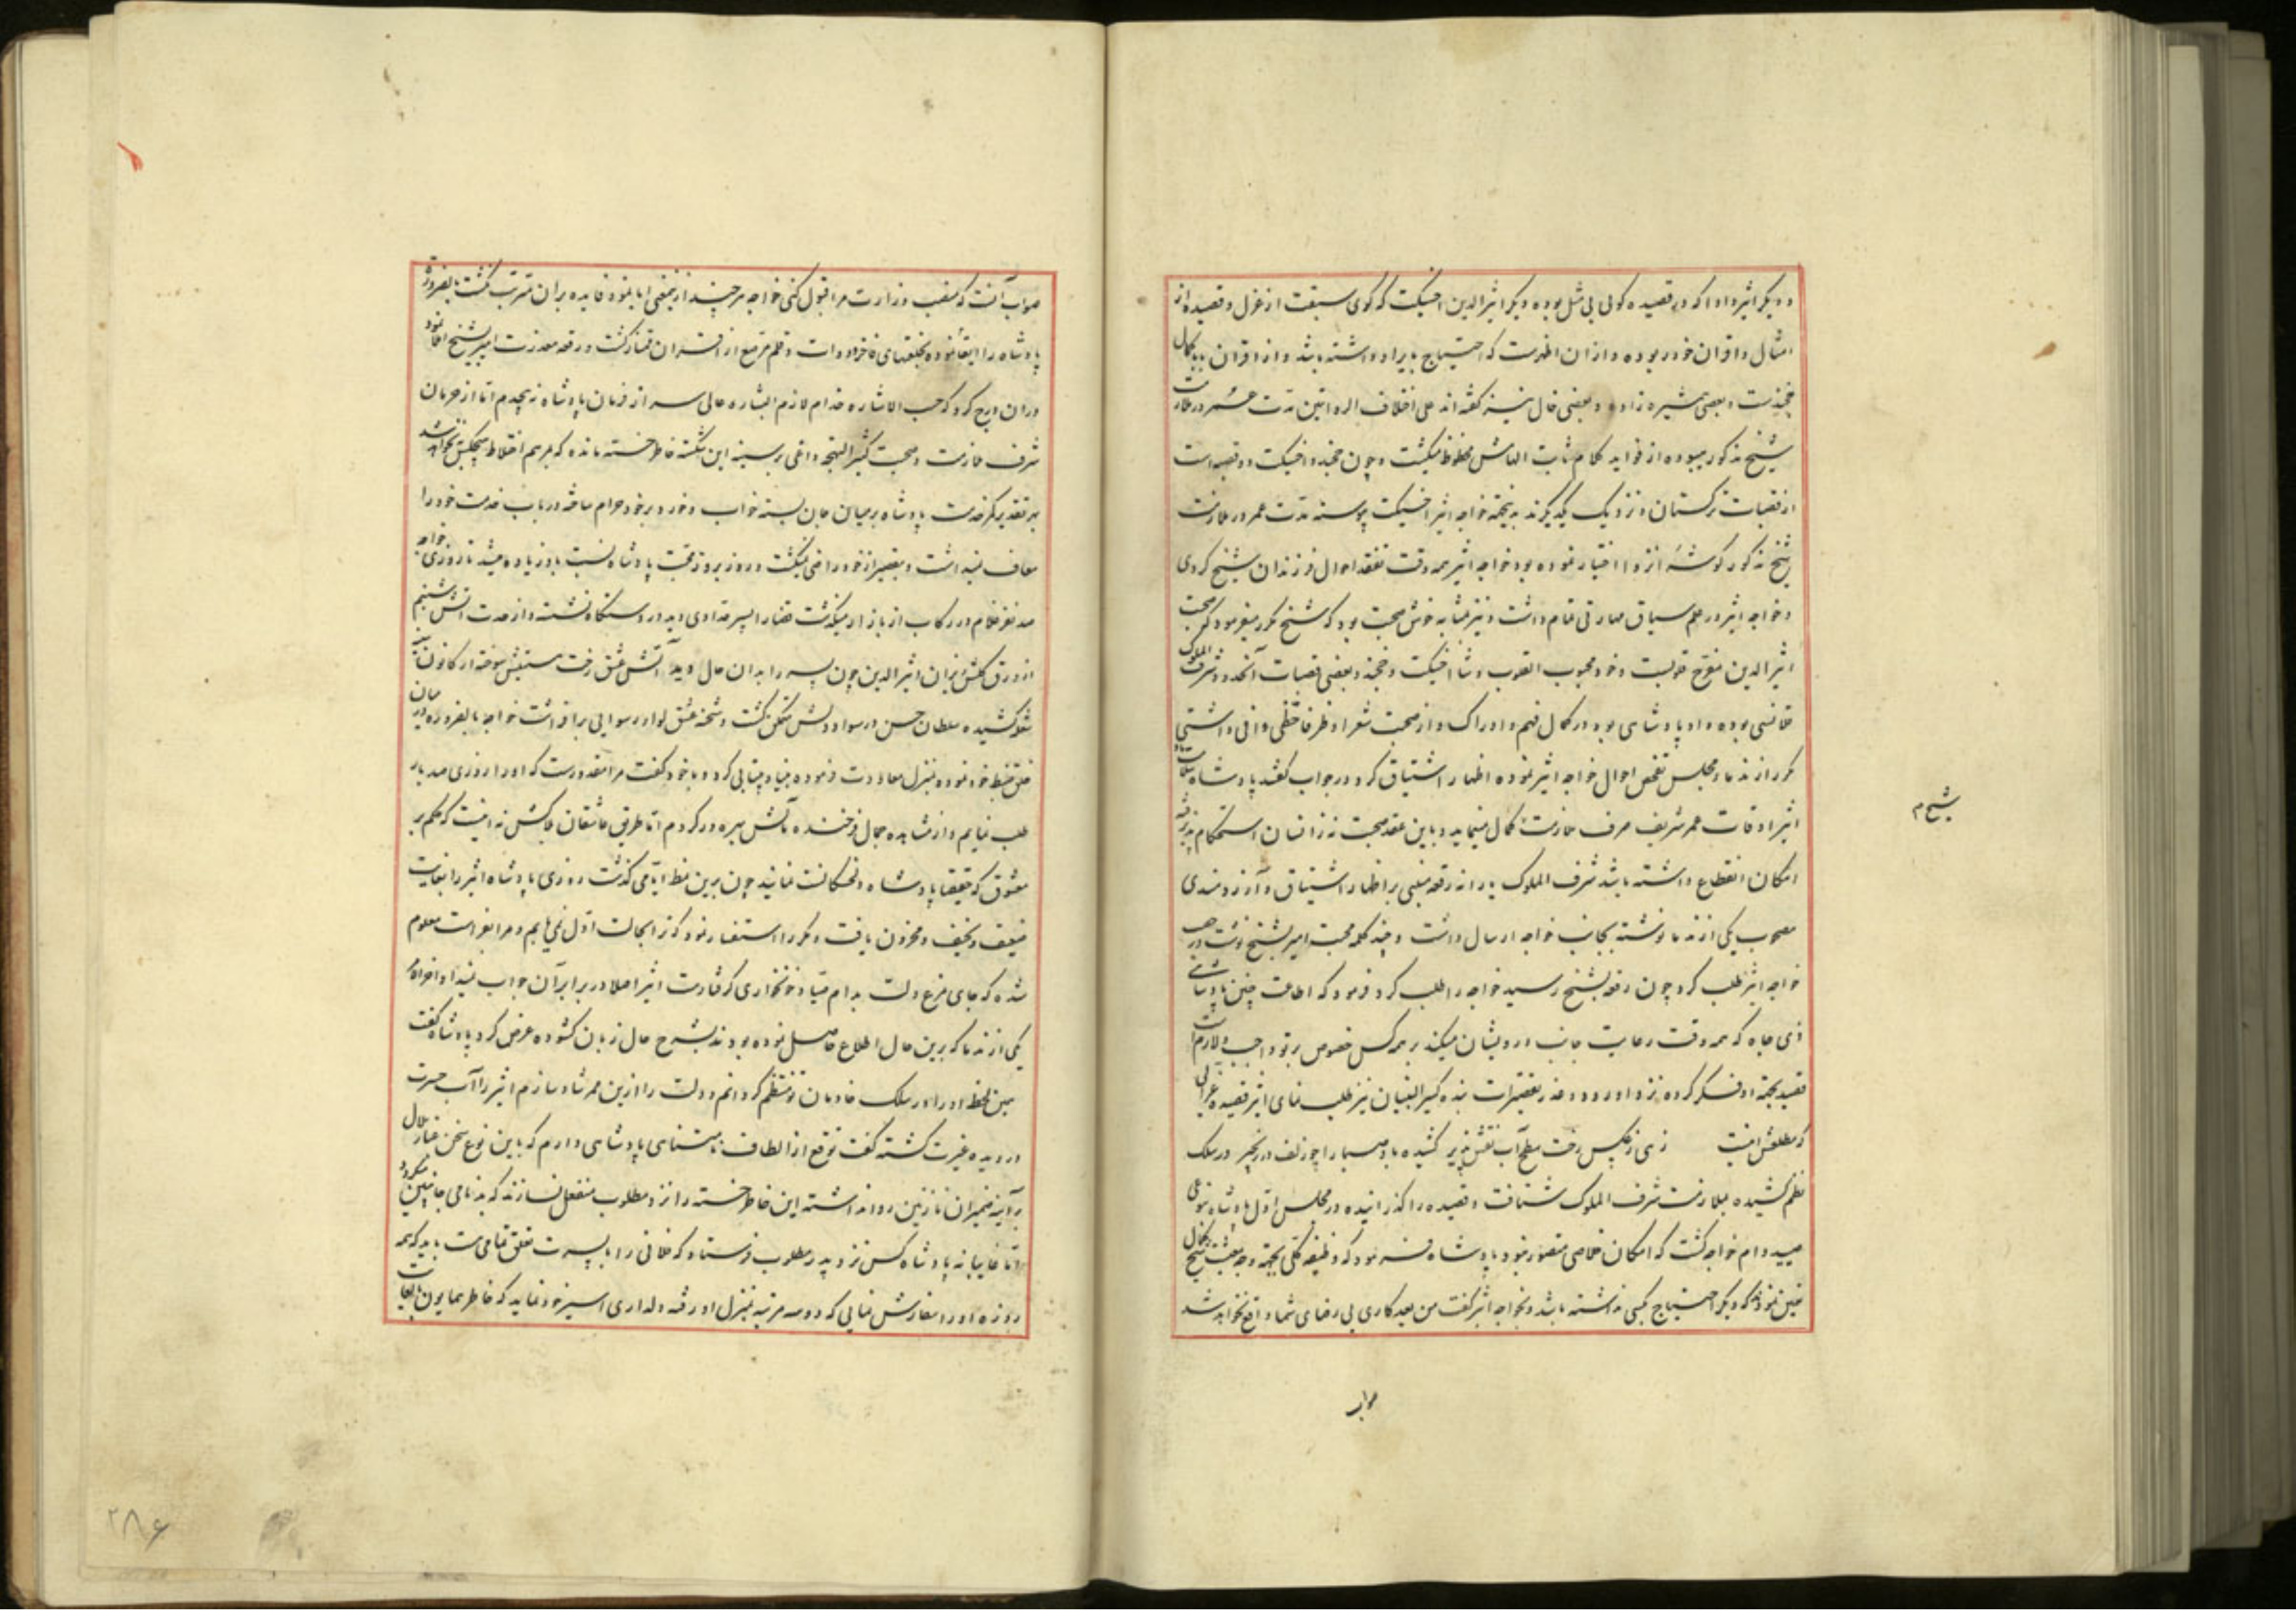 و دیگر اثیر و ادا که در قصیده کوئی بی مثل بوده و دیگر اثیرالدین اخسیکت که کوی سبقت از غزل و قصیده از
امثال و اقران خود ربوده و از ان اظهرست که احتیاج بایراد داشته باشد و از اقران باباکمال
خجندیست و بعضی همشیره زاده و بعضی خال نیز گفته اند علی اختلاف الروایتین مدت عمر در ملازمت
شیخ مذکور میبوده از فواید کلام محظوظ میگشت و چون خجند و اخسیکت دو قصبه است
از قصبات ترکستان و نزدیک یکدیگرند بدینجهة خواجه اثیر اخسیکت پیوسته مدت عمر در ملازمت
شیخ مذکور گوشهٔ انزوا اختیار نموده بود خواجه اثیر همه وقت تفقد احوال فرزندان شیخ کردی
و خواجه اثیر در علم سیاق مهارتی تمام داشت و نیز بمثابه خوش صحبت بود که شیخ مکرر میفرمود که صحبت
اثیرالدین مفرح قلوبست و خود محبوب القلوب و شاه اخسیکت و خجند و بعضی قصبات آنحدود شرف الملوک
خانسی بوده و او پادشاهی بود در کمال فهم و ادراک و از صحبت شعرا و ظرفا حظی وافی داشتی
مکرر از ندما و مجلس تفحص احوال خواجه اثیر نموده اظهار اشتیاق کرد در جواب گفتند پادشاه سلامت
اثیر اوقات عمر شریف صرف ملازمت کمال مینماید و باین عقد صحبت نه زانسان استحکام پذیرفته
امکان انقطاع داشته باشد شرف الملوک یارانه رقعه مبنی بر اظهار اشتیاق و آرزومندی
مصحوب یکی از ندما نوشته بجانب خواجه ارسال داشت و چند کلمه محبت امیز بشیخ نوشت و صحبت
خواجه اثیر طلب کرد چون رقعه بشیخ رسید خواجه را طلب کرد فرمود که اطاعت چنین پادشاهی
ذی جاه که همه وقت رعایت جانب درویشان میکند بر همه کس خصوص بر تو واجب و لازمست
قصیده بجهة او فکر کرده نزد او رو و عذر تقصیرات بنده کبیر السن نیز طلب نمای اثیر قصیده غرائی
که مطلعش اینست زهی ز عکس رخت سطح آب نقش پذیر کشیده باد صبا را چو زلف در زنجیر در سلک
نظم کشیده بملازمت شرف الملوک شتافت و قصیده را گذرانیده در مجلس اول پادشاه بنوعی
صید دام خواجه گشت که امکان خلاصی متصور نبود پادشاه فرمود که وظیفه کلی بجهة وجه معیشت شیخ کمال
تعین نمودند که دیگر احتیاج بکسی نداشته باشد و بخواجه اثیر گفت من بعد کاری بی رضای شما واقع نخواهد شد
شیخ م
صواب
صواب آنست که منصب وزارت مرا قبول کنی خواجه هر چند ازینمعنی ابا نمود فایده بران مترتب نگشت بالضروره
پادشاه را ابقا نموده بخلعتهای فاخر و دوات و قلم مرصع از اقران ممتاز گشت و رقعه معذرت امیز بشیخ املا نمود
دران درج کرد که حسب الاشاره خدام لازم البشاره عالی سر از فرمان پادشاه نه پیچیدم اما از حرمان
شرف ملازمت و صحبت کثیر البهجه داغی بر سینه این شکسته خاطر خسته مانده که بمرهم اختلاط هیچکس به نخواهد شد
بهر تقدیر کمر خدمت پادشاه بر میان جان بسته خواب و خور بر خود حرام ساخته در باب خدمت خود را
معاف نمیداشت و بتقصیر از خود راضی نمیگشت و روز بروز محبت پادشاه نسبت باو زیاده میشد تا روزی خواجه
صد نفر غلام در رکاب از بازار میگذشت قضا را پسر حدادی دید در دستگاه نشسته و از حدت آتش شبنم
از ورق گلش ریزان اثیرالدین چون پسر را بدان حال دید آتش عشق رخت سوخته از کانون سینه
شعله کشیده سلطان حسن در سواد دلش متمکن گشت و شحنه عشق لوای رسوایی برافراشت خواجه بالضروره در میان
خلق ضبط خود نموده بمنزل معاودت فرموده بنیاد بیتابی کرد و با خود گفت مرا مقدورست که او را روزی صد بار
طلب نمایم و از مشاهده جمال فرخنده مآلش بهره ور گردم اما طریق عاشقان بلاکش نه اینست که حکم بر
معشوق که حقیقتا پادشاه دلخستگانست نمایند چون برین نمط ایامی گذشت روزی پادشاه اثیر را بغایت
ضعیف و نحیف و محزون یافت و مکرر استفسار نمود که ترا بحالت اول نمی یابیم و مرا بفراست معلوم
شده که جای مرغ دلت بدام صیاد خونخواری گرفتارست اثیر اصلا در برابر آن جواب نمیداد آخرالامر
یکی از ندما که برین حال اطلاع حاصل نموده بودند بشرح حال زبان گشوده عرض کرد پادشاه گفت
همین لحظه او را در سلک خادمان تو منتظم گردانم و دولت را ازین ممر شاد سازم اثیر را آب حسرت
در دیده غیرت گشته گفت توقع از الطاف نامتناهی پادشاهی دارم که باین نوع سخن غبار ملال
بر آینه ضمیر ان نازنین روا نداشته این خاطر خسته را نزد مطلوب منفعل نسازند که بدنامی جانبین میگردد
اما غایبانه پادشاه کس نزد پدر مطلوب فرستاد که فلانی را با پسرت تعلق تمامی هست باید که همه
روزه او را سفارش نمایی که دو سه مرتبه بمنزل او رفته دلداری اسیر خود نماید که خاطر همایون بغایت
۲۸۶